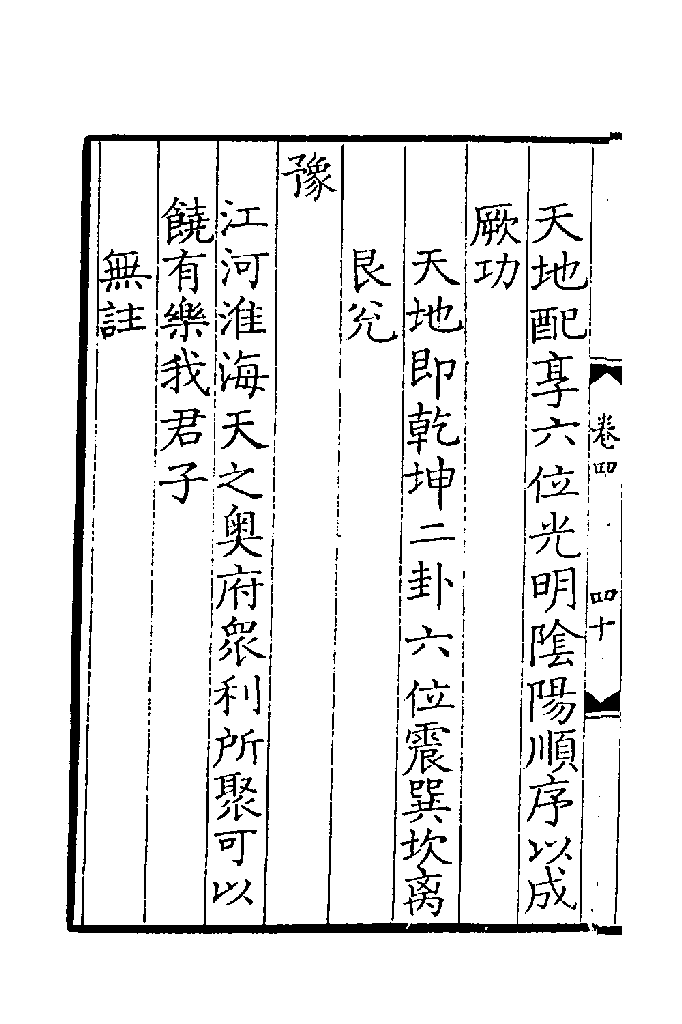 天地配享六位光明陰陽順序以成
厥功
天地即乾坤二卦六位震巽坎离
艮兊
豫
江河淮海天之奥府衆利所聚可以
饒有樂我君子
無註
卷四
四十